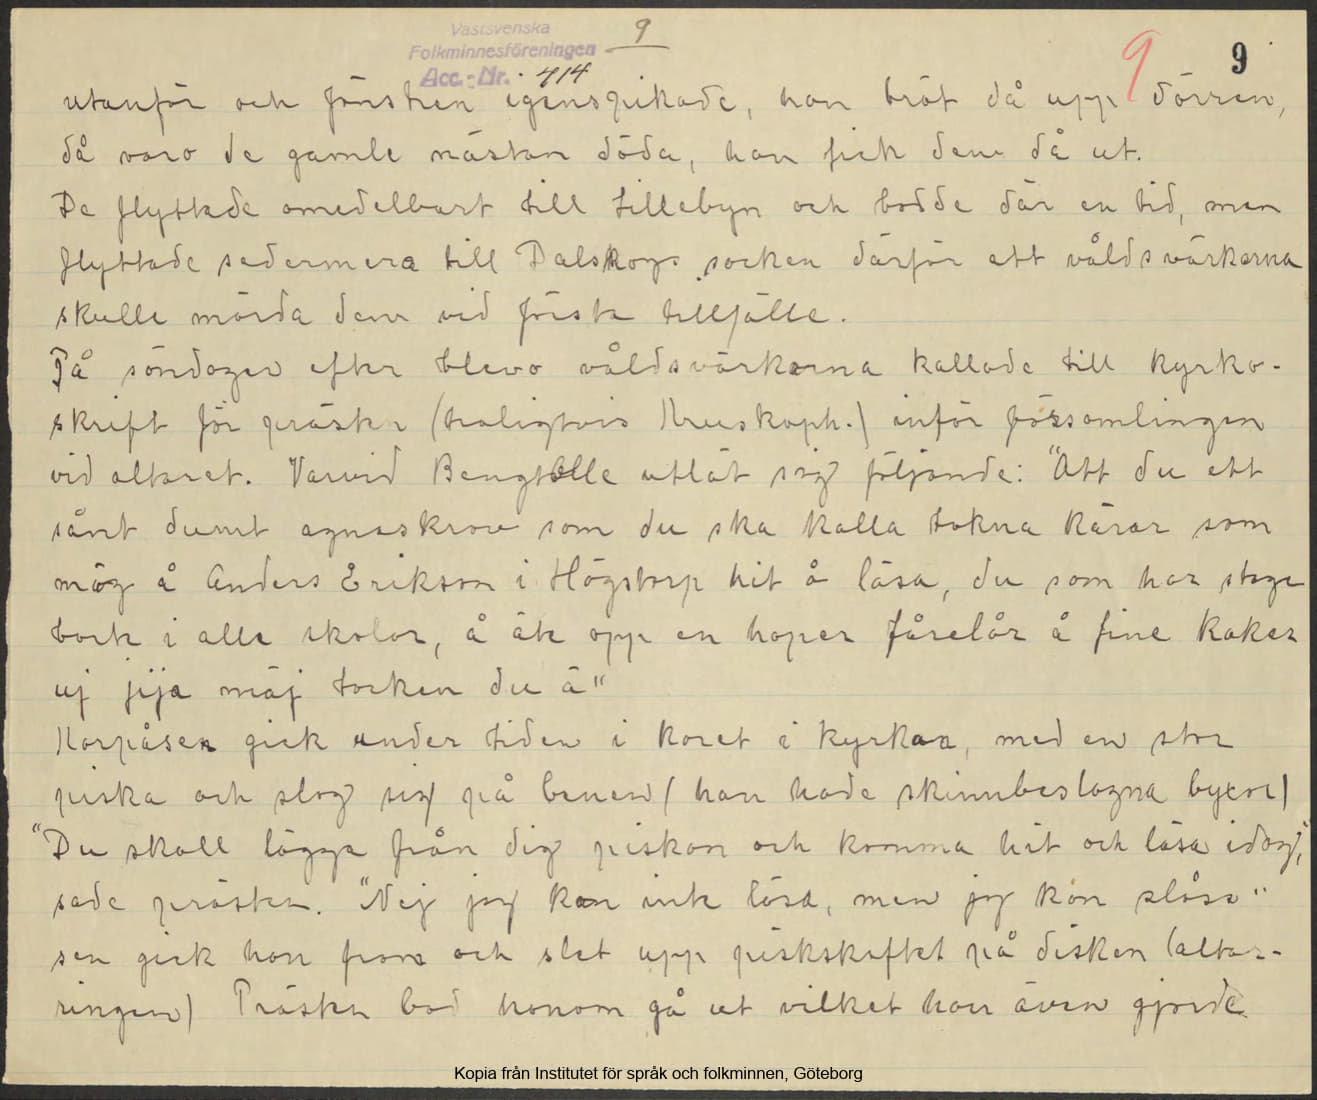 Västsvenska
Folkminnesföreningen
Acc.-Nr. 414
9
9
9
utanför och fönstren igenspikade, han bröt då upp dörren,
då voro de gamle nästan döda, han fick dem då ut.
De flyttade omedelbart till Lillebyn och bodde där en tid, men
flyttade sedermera till Dalskogs socken därför att våldsvärkarna
skulle mörda dem vid första tillfälle.
På söndagen efter blevo våldsvärkarna kallade till kyrko-
skrift för prästen (troligtvis Kruskoph.) inför församlingen
vid altaret. Varvid Bengtolle utlät sig följande: "Att du ett
sånt dumt agnaskrov som du ska kalla tokna karar som
mäg å Anders Erikson i Högstorp hit å läsa, du som har stage
tock i alle skolor, å äte opp en hoper fårelår å fine kaker
uj jija mäj tocken du ä"
Korpåsen gick under tiden i koret i kyrkan, med en stor
piska och slog sig på benen (han hade skinnbeslagna byxor)
"Du skall lägga från dig piskan och komma hit och läsa idag,"
sade prästen. "Nej jag kan inte läsa, men jag kan slåss"
sen gick han fram och slet upp piskskaftet på disken (altar-
ringen) Prästen bad honom gå ut vilket han även gjorde
Kopia från Institutet för språk och folkminnen, Göteborg